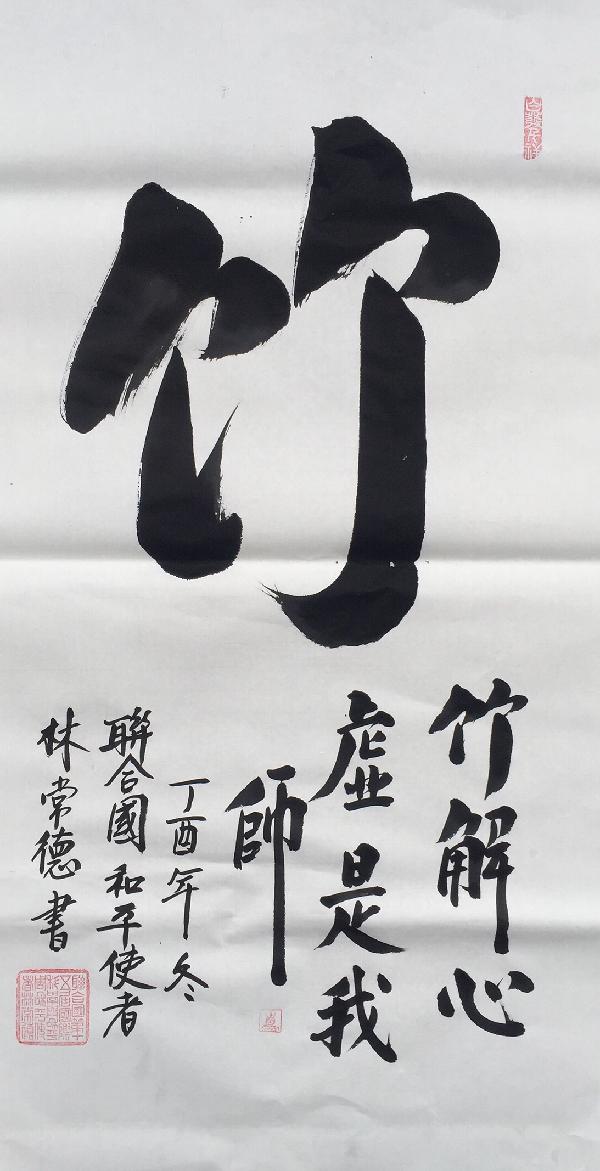 竹
竹解心
虛是我
師
丁酉年冬
聯合國和平使者
林常德書